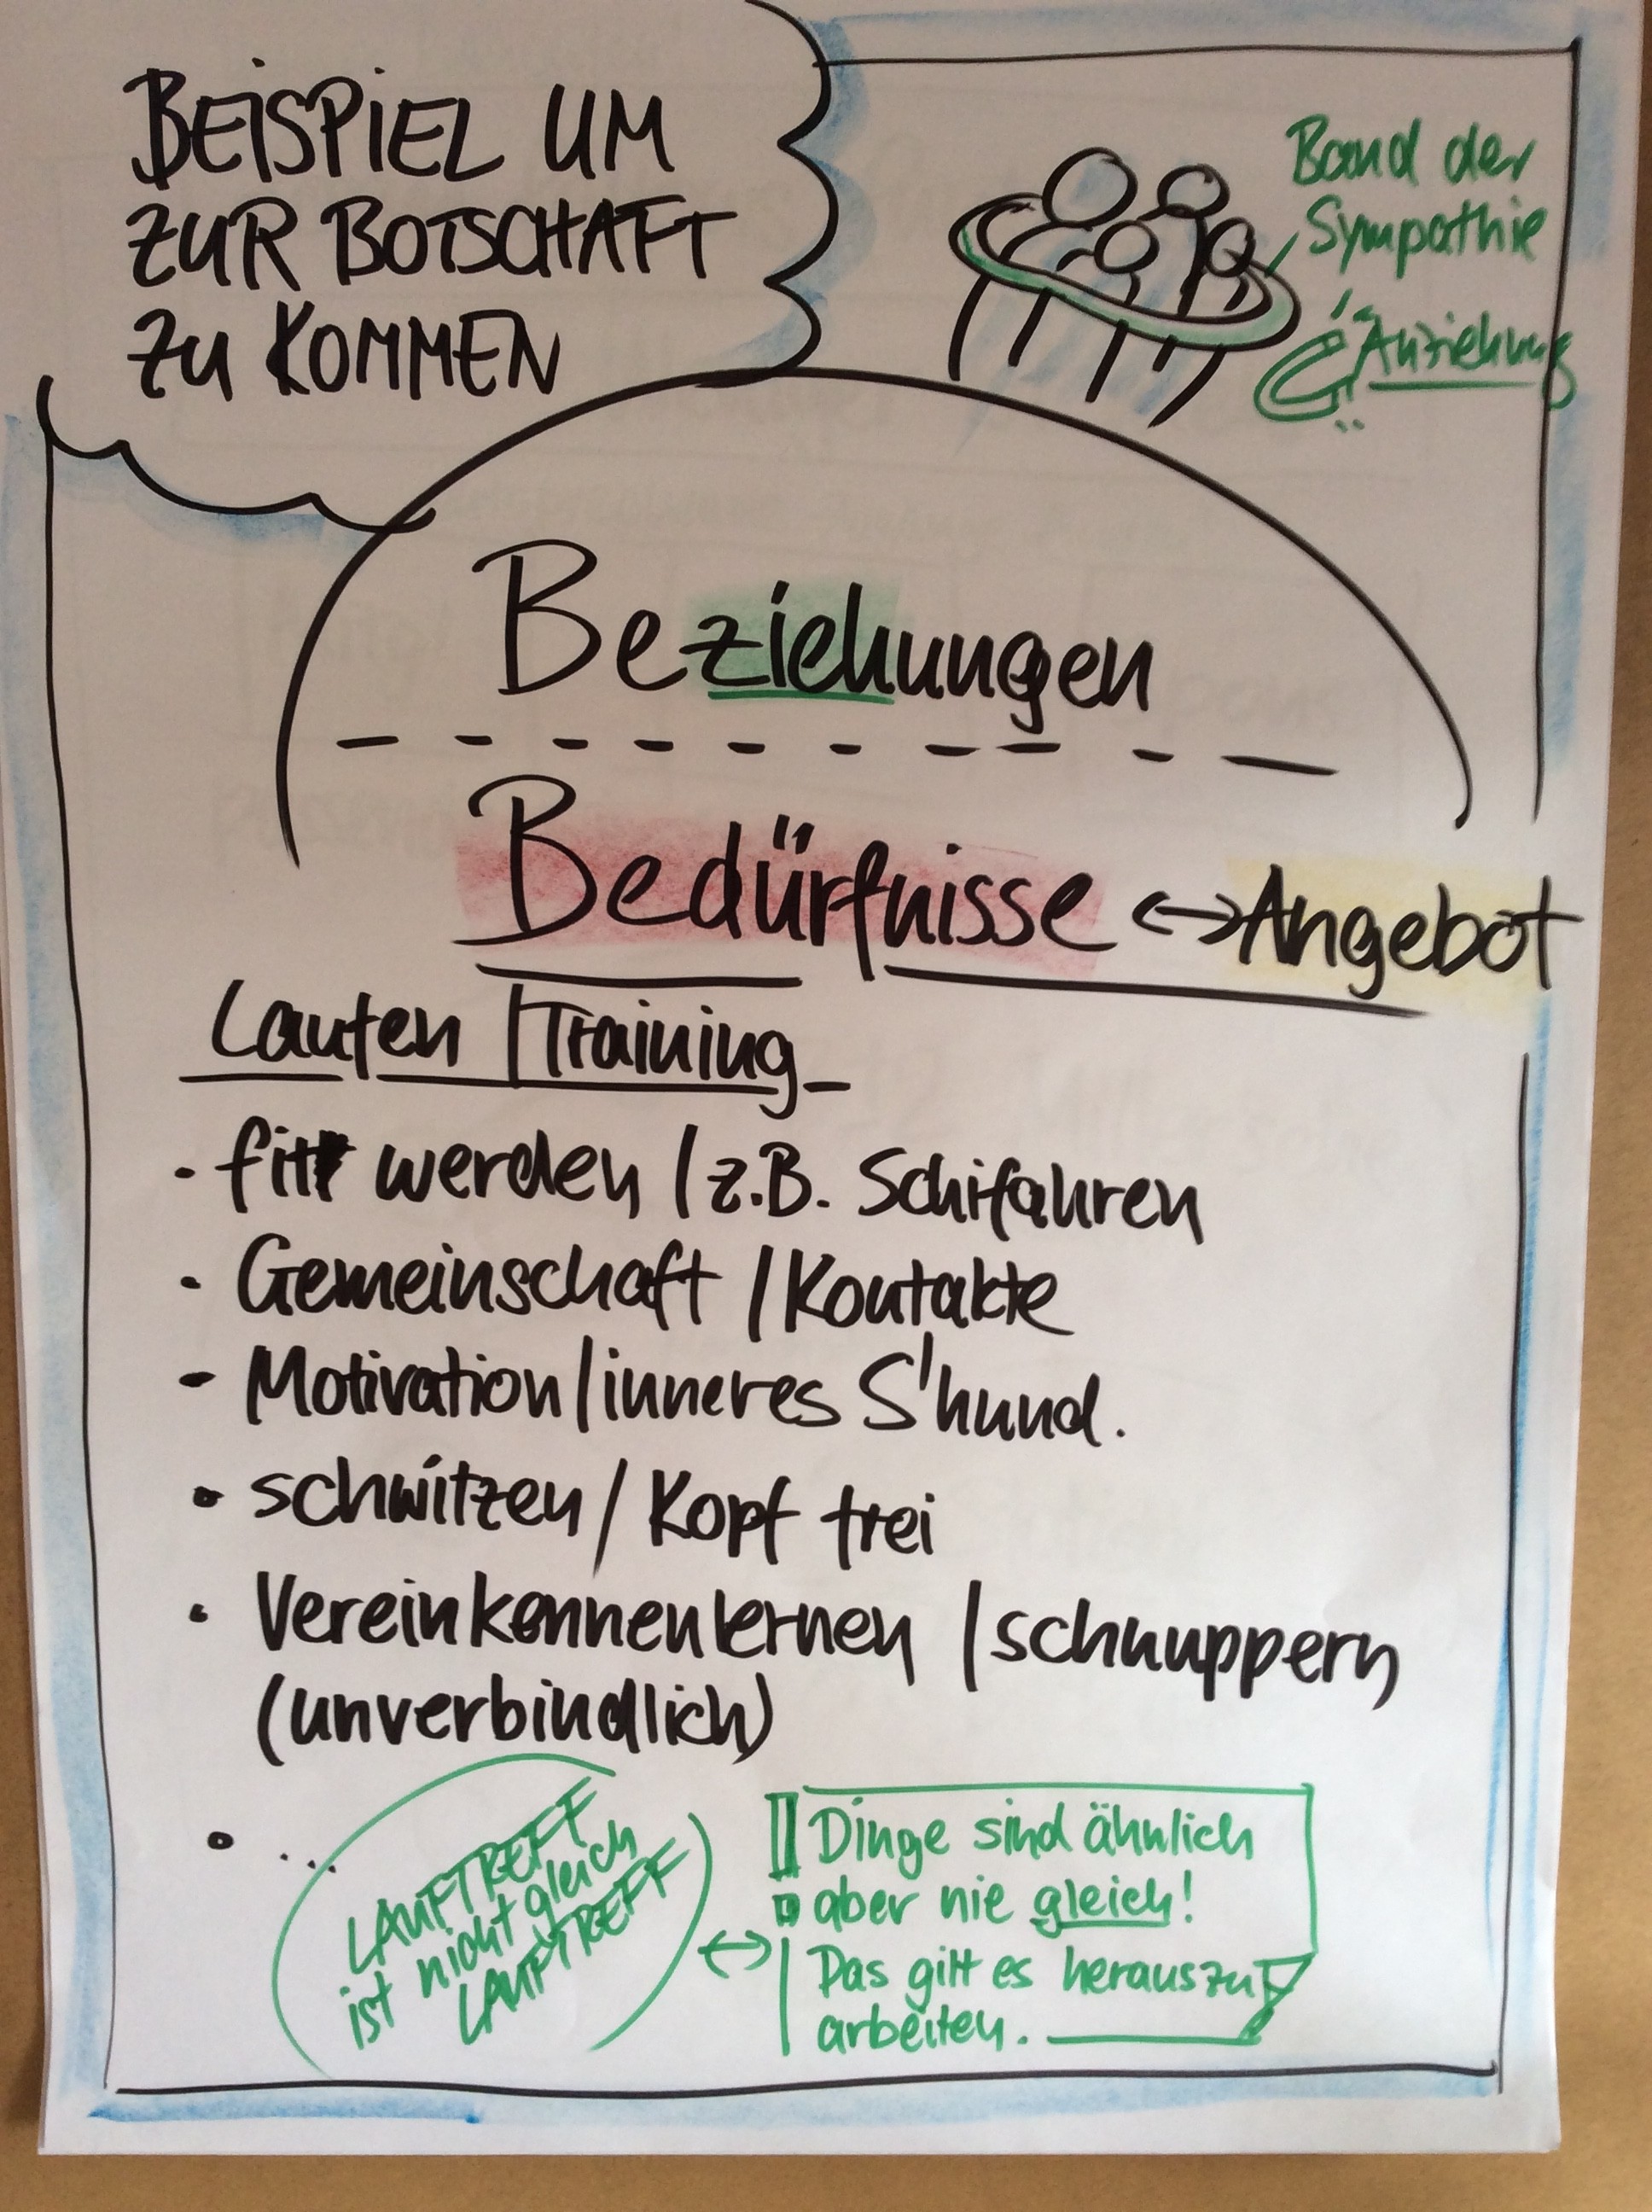 BEISPIEL UM
ZUR BOTSCHAFT
ZU KOMMEN
Band der
Sympathie
Anziehung
Beziehungen
Bedürfnisse <-> Angebot
Laufen / Training
· fit werden / z.B. Schifahren
· Gemeinschaft / Kontakte
- Motivation / inneres S'hund.
· schwitzen / Kopf frei
· Verein kennenlernen / schnuppern
(unverbindlich)
· ...
LAUFTREFF
ist nicht gleich
LAUFTREFF
<->
! Dinge sind ähnlich
aber nie gleich!
Das gilt es herauszu
arbeiten.